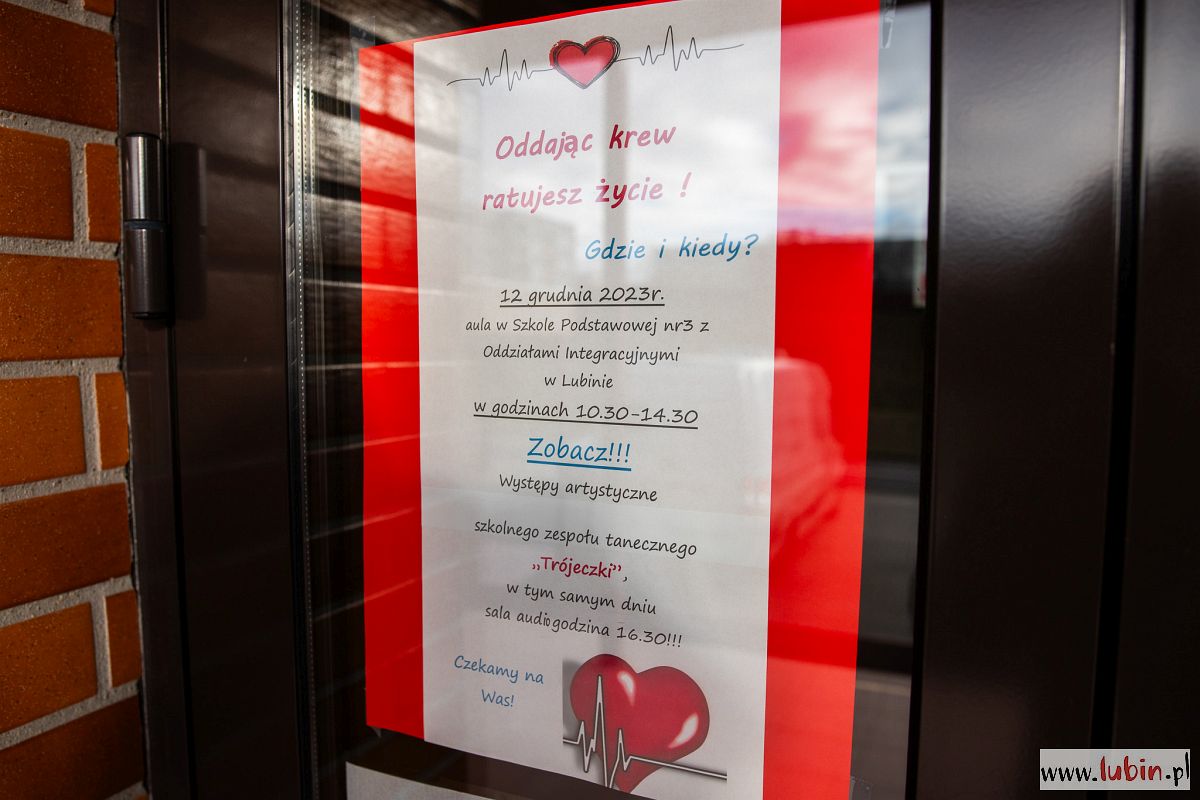 Oddając krew
ratujesz życie !
Gdzie i kiedy?
12 grudnia 2023r.
aula w Szkole Podstawowej nr3 z
Oddziałami Integracyjnymi
w Lubinie
w godzinach 10.30-14.30
Zobacz!!!
Występy artystyczne
szkolnego zespołu tanecznego
„Trójeczki”,
w tym samym dniu
sala audio godzina 16.30!!!
Czekamy na
Was!
www.lubin.pl